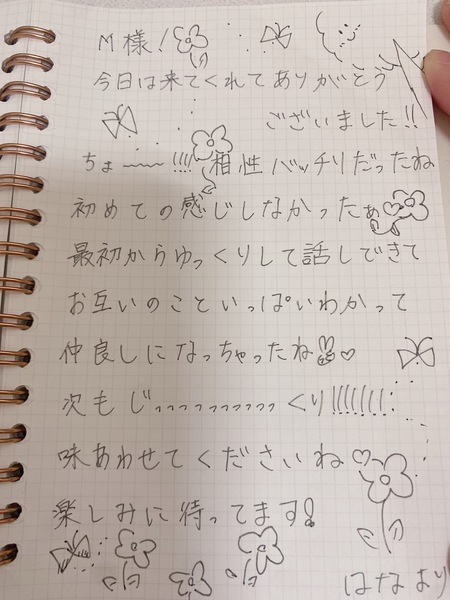 M様!
今日は来てくれてありがとう
ございました!!
ちょ〜〜!!!!相性バッチリだったね
初めての感じしなかったぁ♡
最初からゆっくりして話しできて
お互いのこといっぱいわかって
仲良しになっちゃったね♡
次もじっっっっっっっっっっくり!!!!!!!!
味あわせてくださいね♡
楽しみに待ってます!
はなより